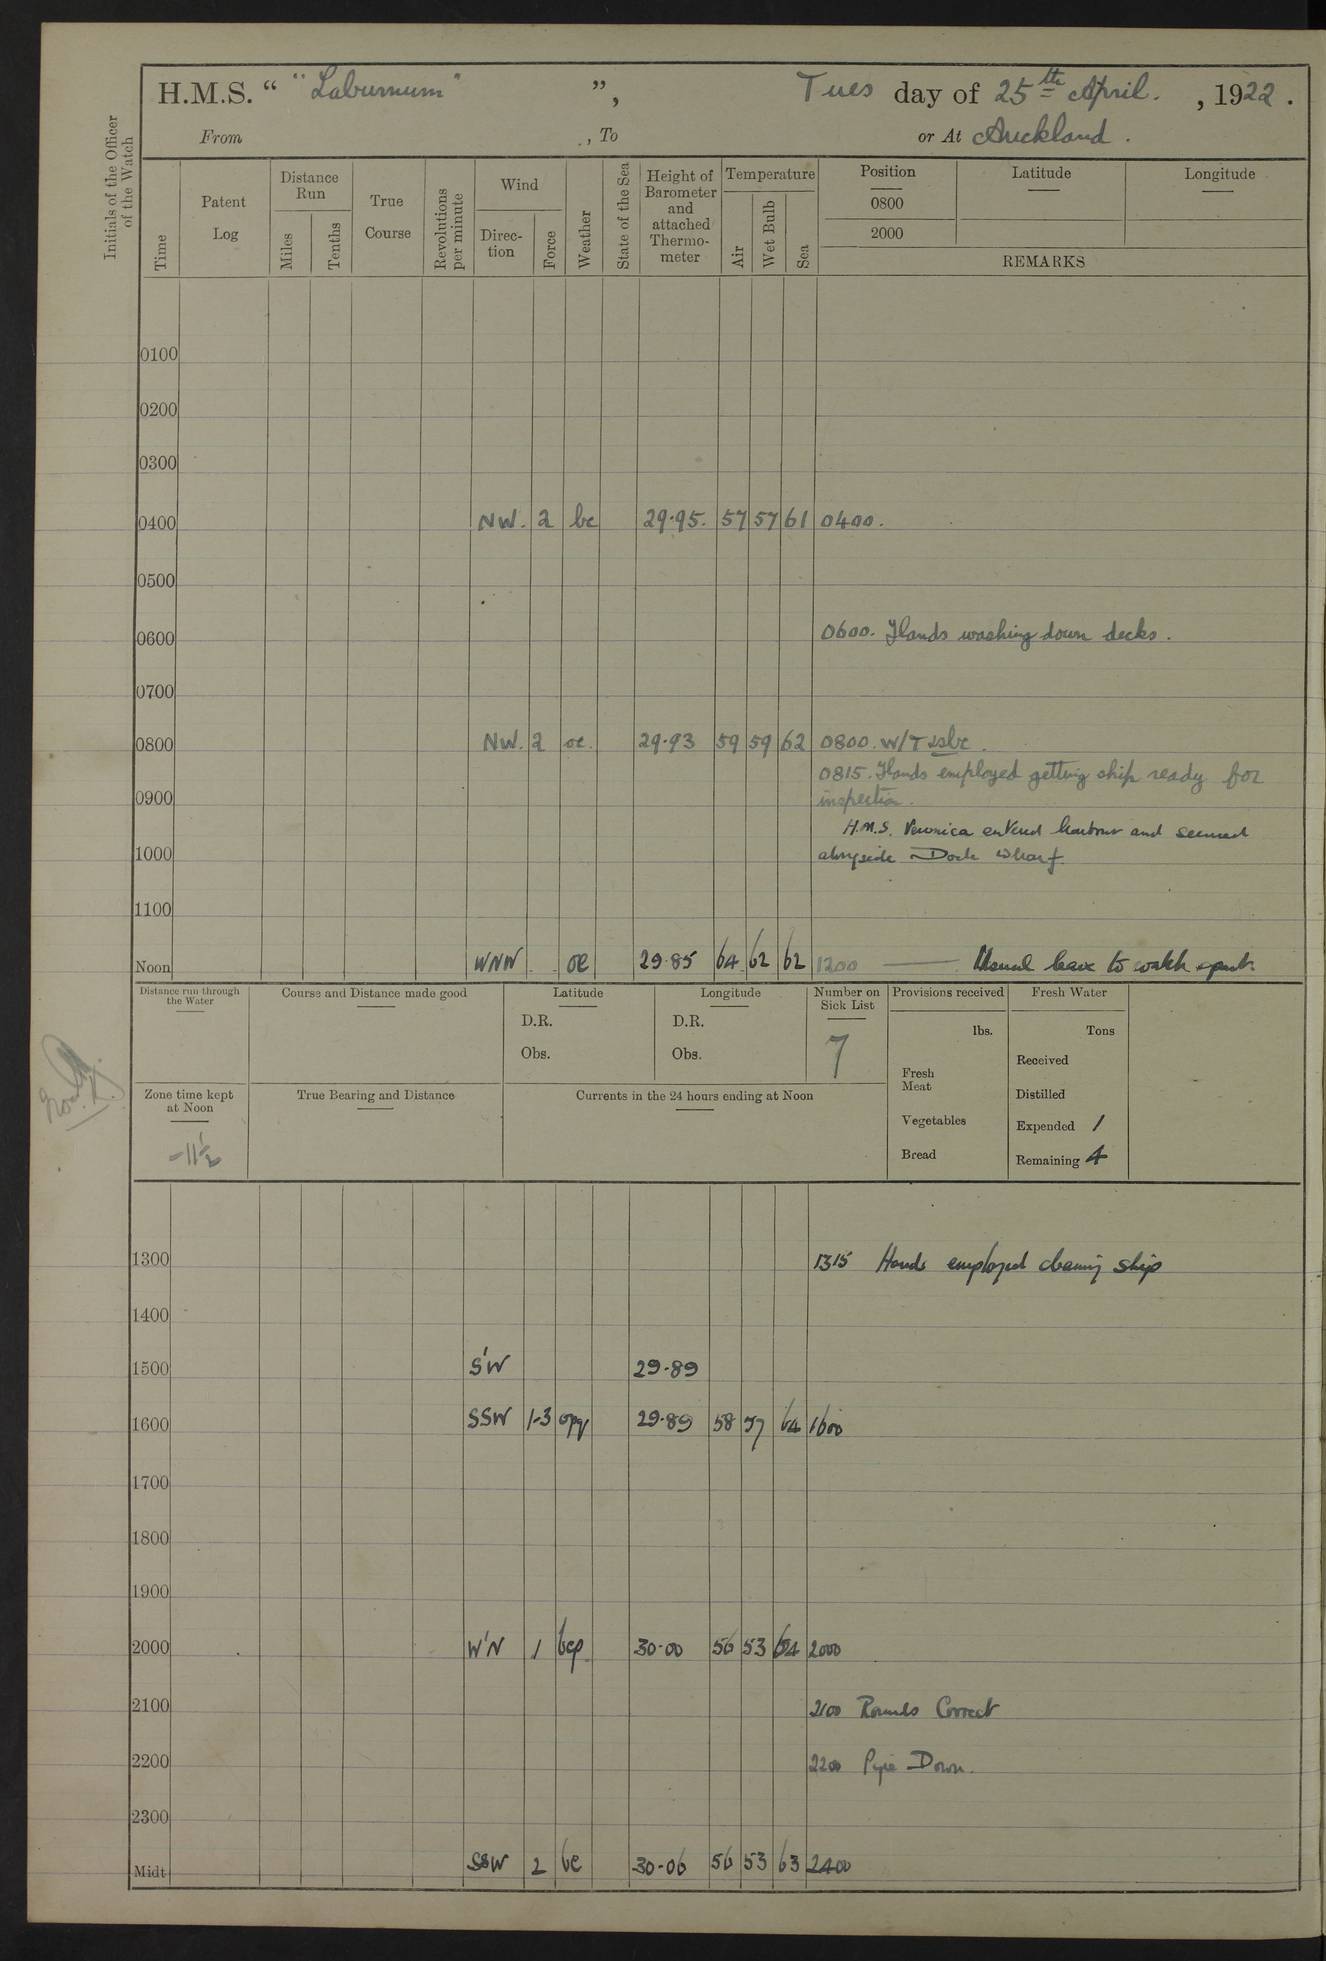 H.M.S. “ "Laburnum" ”, Tues day of 25th April. , 1922.
From , To or At Auckland.
Initials of the Officer of the Watch
Time
Patent Log
Distance Run
Miles
Tenths
True Course
Revolutions per minute
Wind
Direc-tion
Force
Weather
State of the Sea
Height of Barometer and attached Thermo-meter
Temperature
Air
Wet Bulb
Sea
Position
0800
2000
Latitude
Longitude
REMARKS
0100
0200
0300
0400 NW. 2 bc 29·95. 57 57 61 0400.
0500
0600 0600. Hands washing down decks.
0700
0800 NW. 2 oc. 29·93 59 59 62 0800. W/T
0815. Hands employed getting ship ready for
0900 inspection.
H.M.S. Veronica entered harbour and secured
1000 alongside Dock Wharf
1100
Noon WNW oc 29·85 64 62 62 1200 Usual leave to watch & part
Distance run through the Water
Course and Distance made good
Latitude
D.R.
Obs.
Longitude
D.R.
Obs.
Number on Sick List
7
Provisions received
lbs.
Fresh Meat
Vegetables
Bread
Fresh Water
Tons
Received
Distilled
Expended 1
Remaining 4
Zone time kept at Noon
-11½
True Bearing and Distance
Currents in the 24 hours ending at Noon
1300 1315 Hands employed cleaning ship
1400
1500 S'W 29·89
1600 SSW 1-3 opq 29·89 58 57 64 1600
1700
1800
1900
2000 W'N 1 bcp 30·00 56 53 64 2000
2100 2100 Rounds Correct
2200 2200 Pipe Down.
2300
Midt SSW 2 bc 30·06 56 53 63 2400